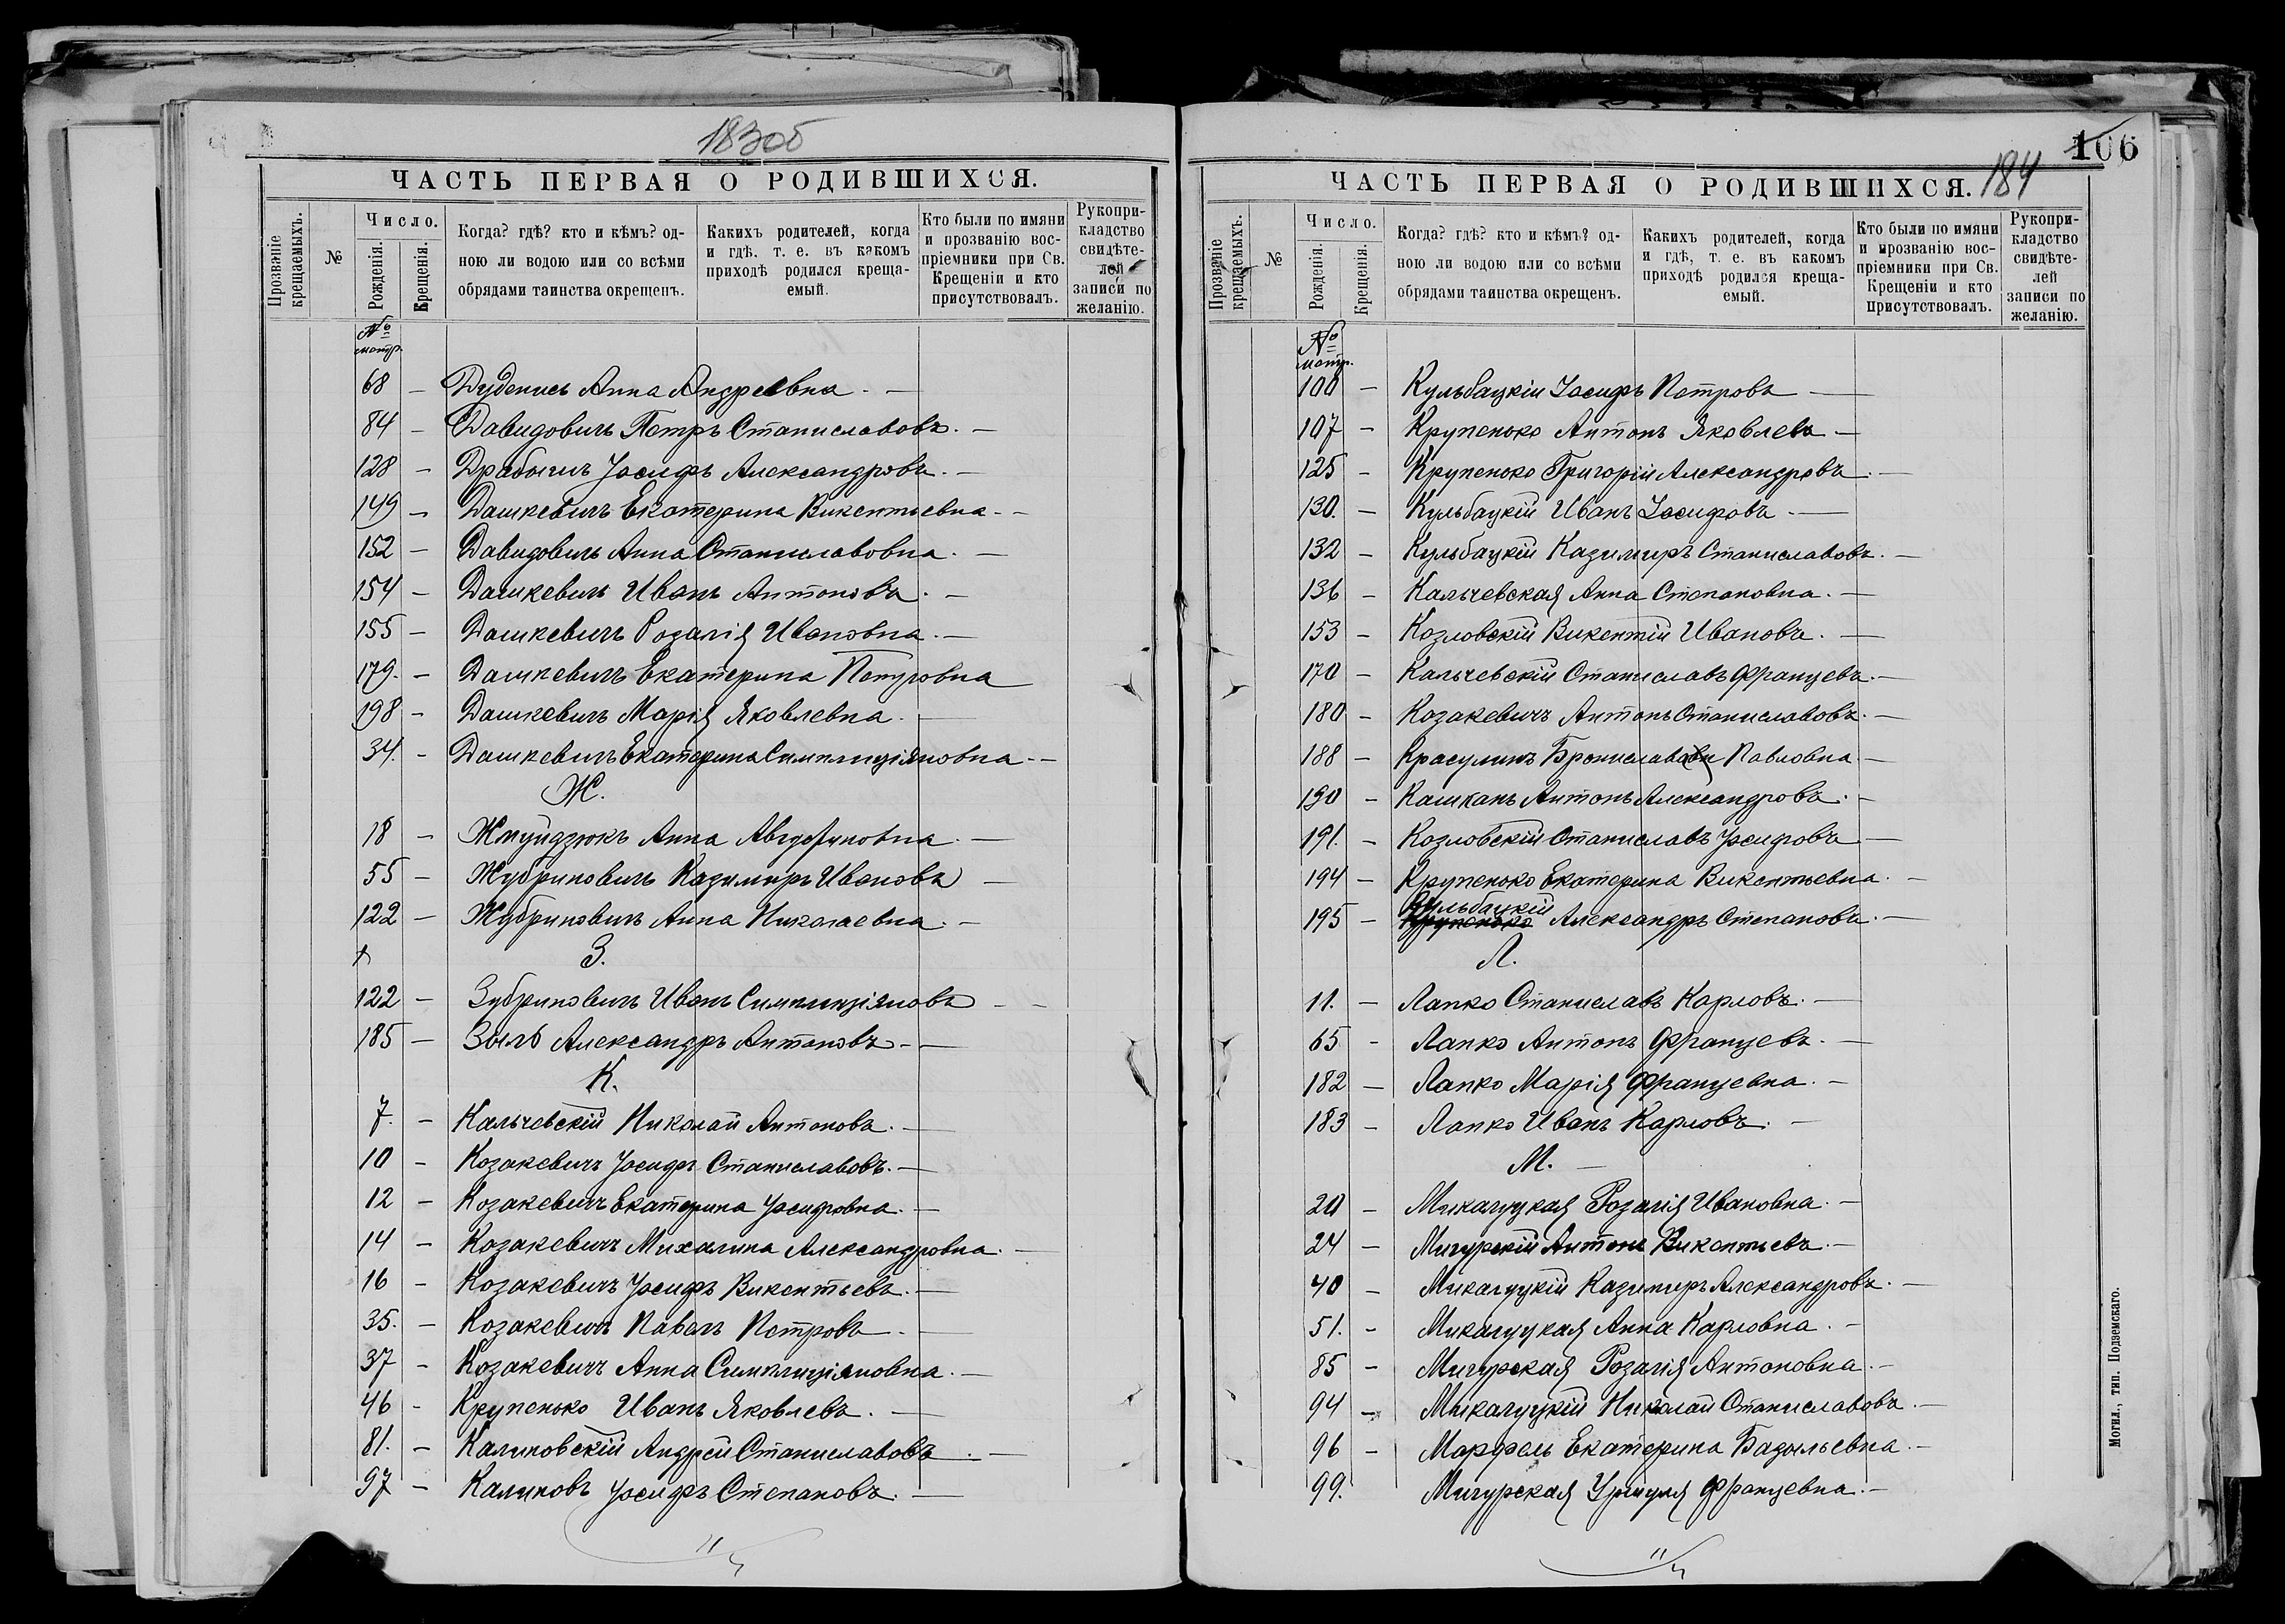 183об
ЧАСТЬ ПЕРВАЯ О РОДИВШИХСЯ.
Прозваніе крещаемыхъ.
№
Число.
Рожденія.
Крещенія.
Когда? гдѣ? кто и кѣмъ? од-
ною ли водою или со всѣми
обрядами таинства окрещенъ.
Какихъ родителей, когда
и гдѣ. т. е. въ какомъ
приходѣ родился креща-
емый.
Кто были по имяни
и прозванію вос-
пріемники при Св.
Крещеніи и кто
присутствовалъ.
Рукопри-
кладство
свидѣте-
лей
записи по
желанію.
№
метр.
68 — Дуденись Анна Андреевна. —
84 — Давидовичъ Петръ Станиславовъ. —
128 — Драбычъ Іосифъ Александровъ. —
149 — Дашкевичъ Екатерина Викентьевна. —
152 — Давидовичъ Анна Станиславовна. —
154 — Дашкевичъ Иванъ Антоновъ. —
155 — Дашкевичъ Розалія Ивановна. —
179. — Дашкевичъ Екатерина Петровна
198 — Дашкевичъ Марія Яковлевна. —
34. — Дашкевичъ Екатерина Симплиціяновна. —
Ж.
18 — Жмуйдзюкъ Анна —
55 — Жубриновичъ Казимиръ Ивановъ —
122 — Жубриновичъ Анна Николаевна. —
З.
122 — Зубриновичъ Иванъ Симплиціяновъ —
185 — Зыль Александръ Антоновъ. —
К.
7. — Кальчевскій Николай Антоновъ. —
10 — Козакевичъ Іосифъ Станиславовъ. —
12 — Козакевичъ Екатерина Іосифовна. —
14 — Козакевичъ Михалина Александровна. —
16 — Козакевичъ Іосифъ Викентьевъ. —
35. — Козакевичъ Павелъ Петровъ. —
37 — Козакевичъ Анна Симплиціяновна. —
46 — Крупенько Иванъ Яковлевъ. —
81. — Калиновскій Андрей Станиславовъ. —
97 — Калиновъ Іосифъ Степановъ. —
106
184
ЧАСТЬ ПЕРВАЯ О РОДИВШИХСЯ.
Прозваніе крещаемыхъ.
№
Число.
Рожденія.
Крещенія.
Когда? гдѣ? кто и кѣмъ? од-
ною ли водою или со всѣми
обрядами таинства окрещенъ.
Какихъ родителей, когда
и гдѣ, т. е. въ какомъ
приходѣ родился креща-
емый.
Кто были по имяни
и прозванію вос-
пріемники при Св.
Крещеніи и кто
присутствовалъ.
Рукопри-
кладство
свидѣте-
лей
записи по
желанію.
№
метр.
100 — Кульбацкій Іосифъ Петровъ —
107 — Крупенько Антонъ Яковлевъ —
125 — Крупенько Григорій Александровъ. —
130. — Кульбацкій Иванъ Іосифовъ. —
132 — Кульбацкій Казимиръ Станиславовъ. —
136 — Кальчевская Анна Степановна. —
153 — Козловскій Викентій Ивановъ. —
170 — Кальчевскій Станиславъ Францевъ. —
180 — Козакевичъ Антонъ Станиславовъ. —
188 — Красулинъ Бронислава Павловна. —
190 — Кашканъ Антонъ Александровъ. —
191. — Козловскій Станиславъ Іосифовъ —
194 — Крупенько Екатерина Викентьевна. —
Кульбацкій
195 — Крупенько Александръ Степановъ. —
Л.
11. — Лапко Станиславъ Карловъ. —
65 — Лапко Антонъ Францевъ. —
182 — Лапко Марія Францевна. —
183 — Лапко Иванъ Карловъ. —
М. —
20 — Микалуцкая Розалія Ивановна. —
24 — Мигурскій Антонъ Викентьевъ. —
40 — Микалуцкій Казимиръ Александровъ. —
51. — Микалуцкая Анна Карловна. —
85 — Мигурская Розалія Антоновна. —
94 — Микалуцкій Николай Станиславовъ. —
96 — Марфель Екатерина Базыльевна. —
99. Мигурская Уршуля Францевна. —
Могил., тип. Подземскаго.